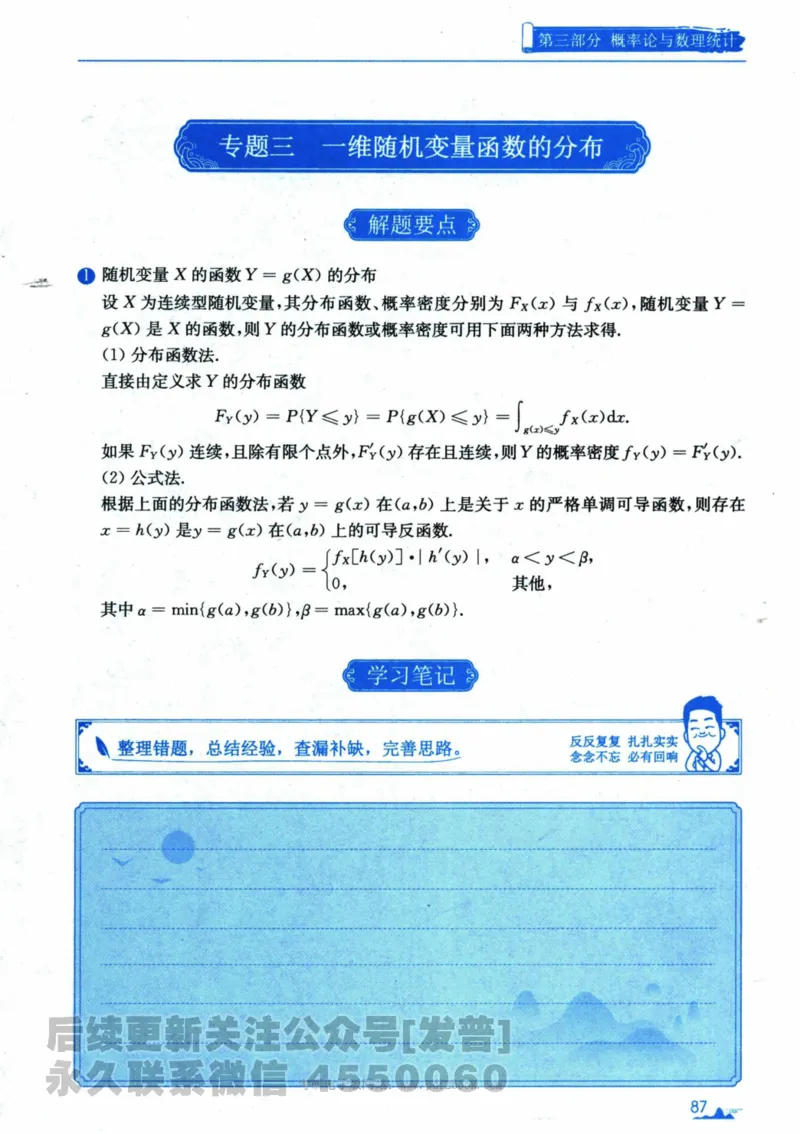 第三部分 概率论与数理统计
专题三 一维随机变量函数的分布
解题要点
❶ 随机变量 X 的函数 Y = g(X) 的分布
设 X 为连续型随机变量,其分布函数、概率密度分别为 F_X(x) 与 f_X(x),随机变量 Y =
g(X) 是 X 的函数,则 Y 的分布函数或概率密度可用下面两种方法求得.
(1) 分布函数法.
直接由定义求 Y 的分布函数
F_Y(y) = P{Y ⩽ y} = P{g(X) ⩽ y} = ∫_{g(x)⩽y} f_X(x)dx.
如果 F_Y(y) 连续,且除有限个点外,F′_Y(y) 存在且连续,则 Y 的概率密度 f_Y(y) = F′_Y(y).
(2) 公式法.
根据上面的分布函数法,若 y = g(x) 在(a,b) 上是关于 x 的严格单调可导函数,则存在
x = h(y) 是y = g(x) 在(a,b) 上的可导反函数.
f_Y(y) = { f_X[h(y)]•| h′(y) |, α < y < β,
0, 其他,
其中 α = min{g(a),g(b)},β = max{g(a),g(b)}.
学习笔记
整理错题，总结经验，查漏补缺，完善思路。
反反复复 扎扎实实
念念不忘 必有回响
后续更新关注公众号[发普]
永久联系微信 4550060
87